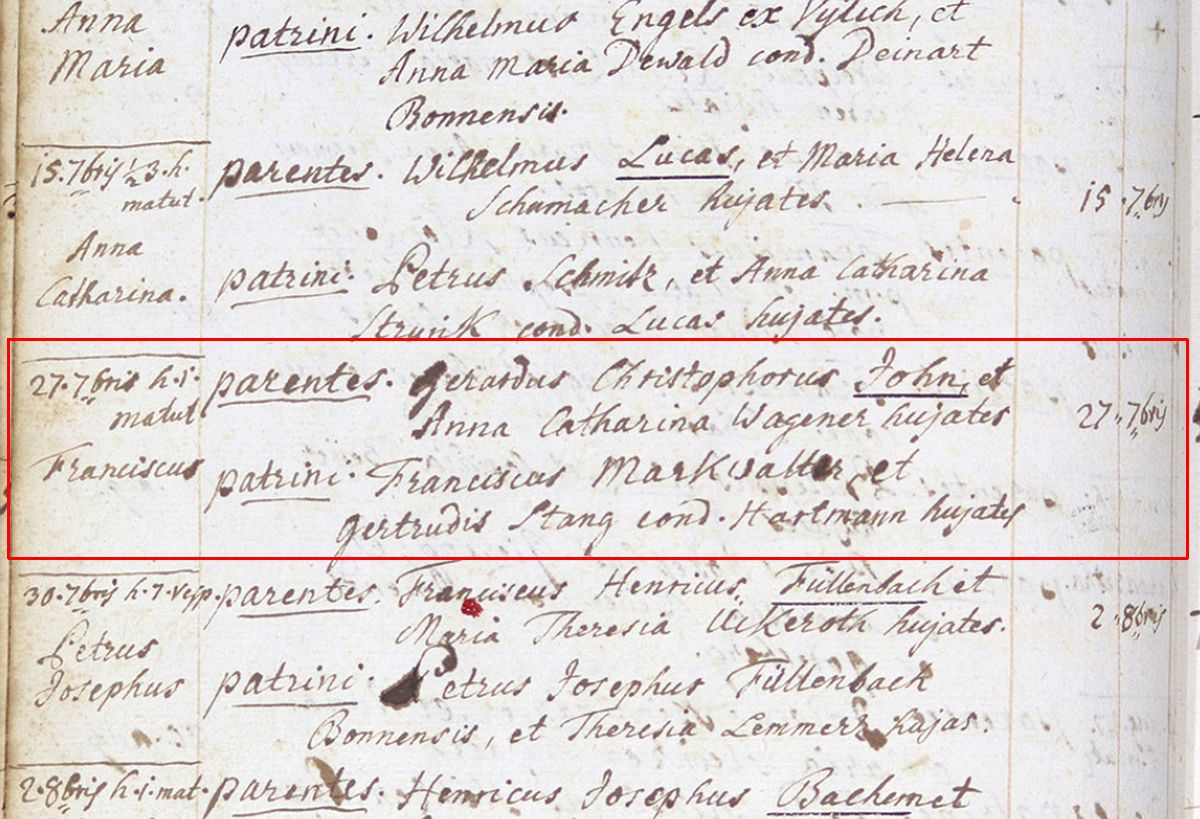 Anna
Maria
patrini. Wilhelmus Engels ex Vylich, et
Anna Maria Dewald cond. Deinart
Bonnensis.
15. 7bris ½3. h.
matut.
Anna
Catharina.
parentes. Wilhelmus Lucas, et Maria Helena
Schumacher hujates.
15 7bris
patrini. Petrus Schmitz, et Anna Catharina
Strunk cond. Lucas hujates.
27. 7bris h. 5.
matut
Franciscus
parentes. Gerardus Christophorus John, et
Anna Catharina Wagener hujates
27 7bris
patrini. Franciscus Markwalter, et
Gertrudis Stang cond. Hartmann hujates
30. 7bris h. 7. vesp.
Petrus
Josephus
parentes. Franciscus Henricus Füllenbach et
Maria Theresia Uckeroth hujates.
2 8bris
patrini. Petrus Josephus Füllenbach
Bonnensis, et Theresia Lemmerz hujas.
2. 8bris h. 5. mat.
parentes. Henricus Josephus Bachem et